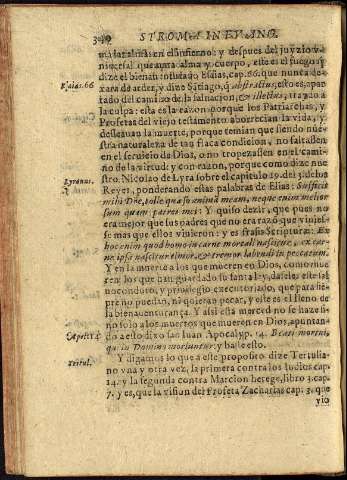 340 STROMA IN EVANG.
nueſal que aura alma y cuerpo, eſte es el fuego q̃
dize el bienauẽturado Eſaias, cap. 66. que nunca de-
Eſaias. 66
xara de arder, y dize Sãtiago, q̃ abſtractus, eſto es, apar
tado del camino de ſaluacion, & illectus, traydo a
la culpa: eſta es la razon porque los Patriarchas, y
Profetas del viejo teſtamento aborrecian la vida, y
deſſeauan la muerte, porque temian que ſiendo nue-
ſtra naturaleza de tan flaca condicion, no faltaſſen
en el ſeruicio de Dios, o no tropezaſſen en el cami-
no de la virtud: y con razon, porque como dize nue
Lyranus.
ſtro Nicolao de Lyra ſobre el capitulo 19. del 3. de los
Reyes, ponderando eſtas palabras de Elias: Sufficit
mihi Dñe, tolle quæſo animã meam, neque enim melior
ſum quam patres mei: Y quiſo dezir, que pues no
era mejor que ſus padres que no era razõ que viuieſ-
ſe mas que ellos viuieron: y es fraſis Scripturæ: Ex
hoc enim quod homo in carne mortali naſcitur, ex car-
ne ipſa naſcitur timor, & tremor labendi in peccatum.
Y en la muerte a los que mueren en Dios, como mue
ren los que han guardado ſu ſanta ley, daſeles eſte ſal
uoconduto, y priuilegio executoriado, que para ſiẽ-
pre no puedan, ni quieran pecar, y eſte es el lleno de
la bienauenturança. Y aſsi eſta merced no ſe haze ſi-
no ſolo a los muertos que mueren en Dios, apuntan-
Apoc. 14.
do a eſto dixo ſan Iuan Apocalyp. 14. Beati mortui,
qui in Domino moriuntur: y baſte eſto.
Tertul.
Y digamos lo que a eſte propoſito dize Tertulia-
no vna y otra vez, la primera contra los Iudios cap.
14. y la ſegunda contra Marcion herege, libro 3. cap.
7. y es, que la viſion del Profeta Zacharias cap. 3. que
vio